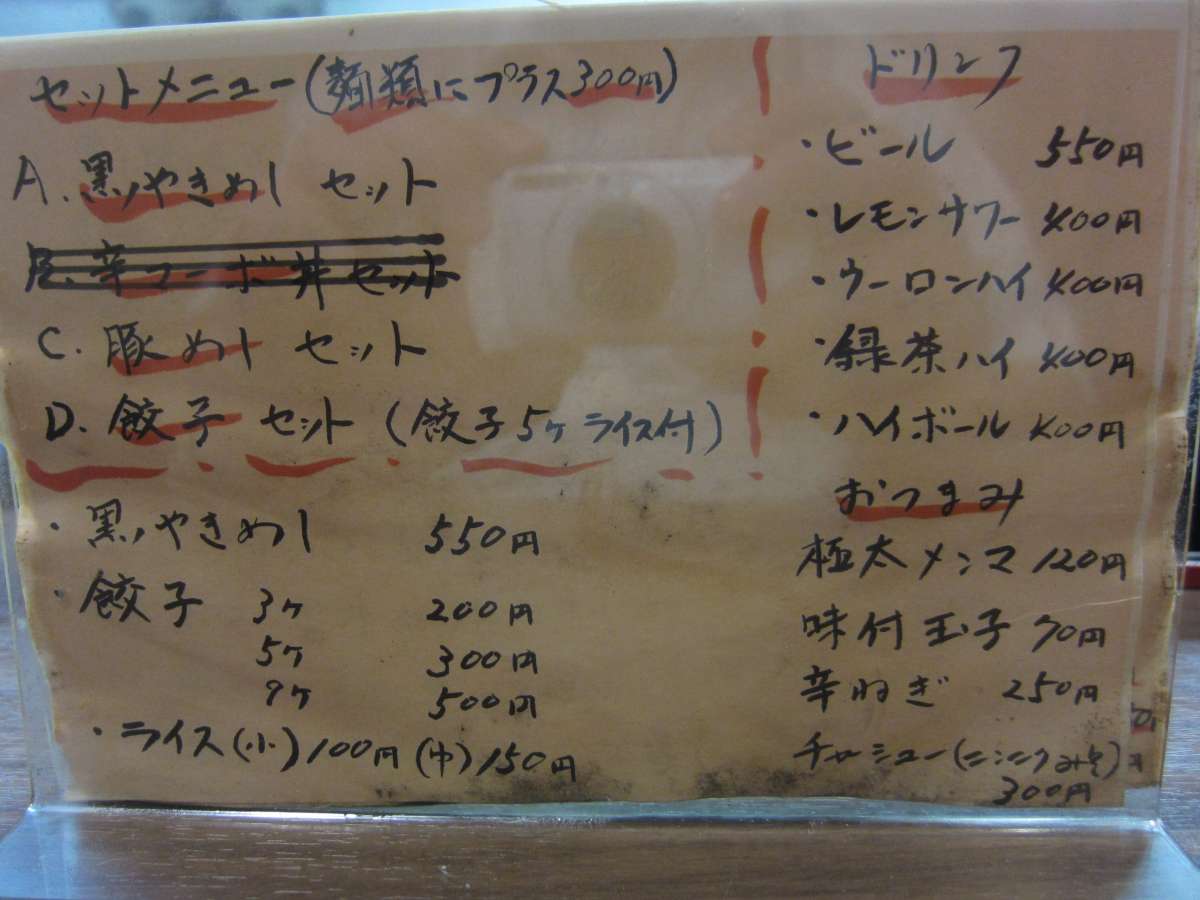 セットメニュー(麺類にプラス300円)
A. 黒いやきめし セット
B. 辛マーボ丼 セット
C. 豚めし セット
D. 餃子 セット (餃子5ヶ ライス付)
・黒いやきめし 550円
・餃子 3ヶ 200円
5ヶ 300円
9ヶ 500円
・ライス(小)100円 (中)150円
ドリンク
・ビール 550円
・レモンサワー 400円
・ウーロンハイ 400円
・緑茶ハイ 400円
・ハイボール 400円
おつまみ
極太メンマ 120円
味付玉子 70円
辛ねぎ 250円
チャーシュー(ニンニクみそ)
300円